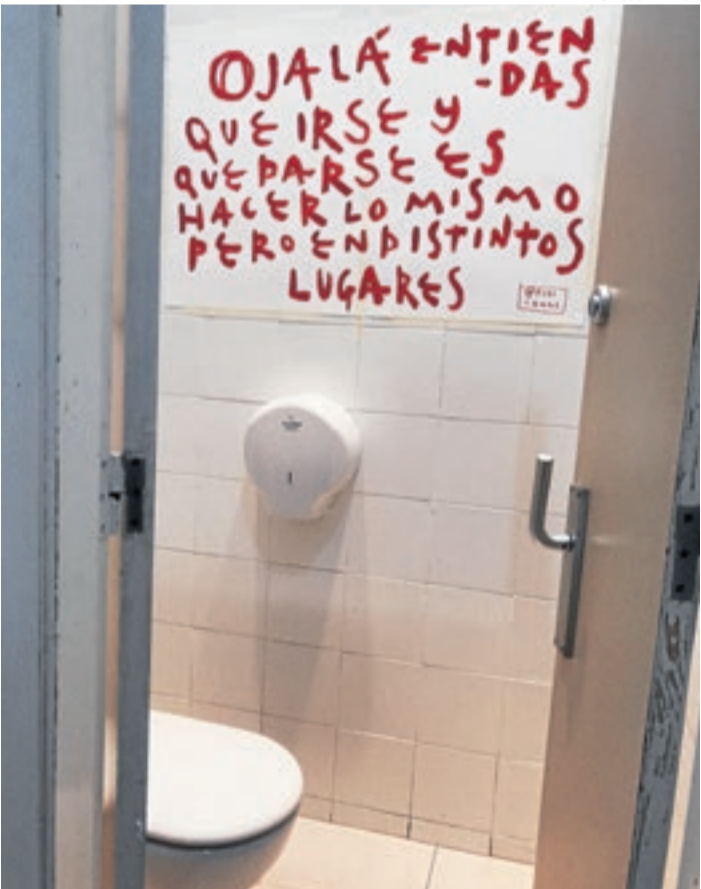 OJALÁ ENTIEN
-DAS
QUE IRSE Y
QUEDARSE ES
HACER LO MISMO
PERO EN DISTINTOS
LUGARES